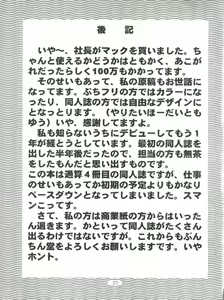 後記
いや〜、社長がマックを買いました。ち
ゃんと使えるかどうかはともかく、あこが
れだったらしく100万もかかってます。
そのせいもあって、私の原稿もお世話に
なってます。ぷちフリの方ではカラーにな
ったり、同人誌の方では自由なデザインに
となっとります。(やりたいほーだいとも
ゆう)いや、感謝してますよ。
私も知らないうちにデビューしてもう1
年が経とうとしています。最初の同人誌を
出した半年後だったので、担当の方も無茶
をしたもんだと思い出すものです。
この本は通算4冊目の同人誌ですが、仕事
のせいもあってか初期の予定よりもかなり
ペースダウンとなってしまいました。スマ
ンこってす。
さて、私の方は商業紙の方からはいった
ん退きます。かといって同人誌がたくさん
出るわけではないですが、これからもぷん
ちん堂をよろしくお願いしますです。いや
ホント。